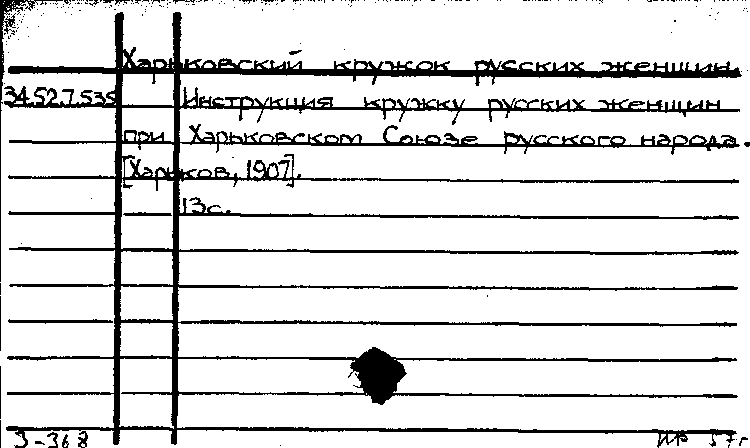 Харьковский кружок русских женщин.
34.52.7.535 Инструкция кружку русских женщин
при Харьковском Союзе русского народа.
[Харьков, 1907].
13с.
3-368